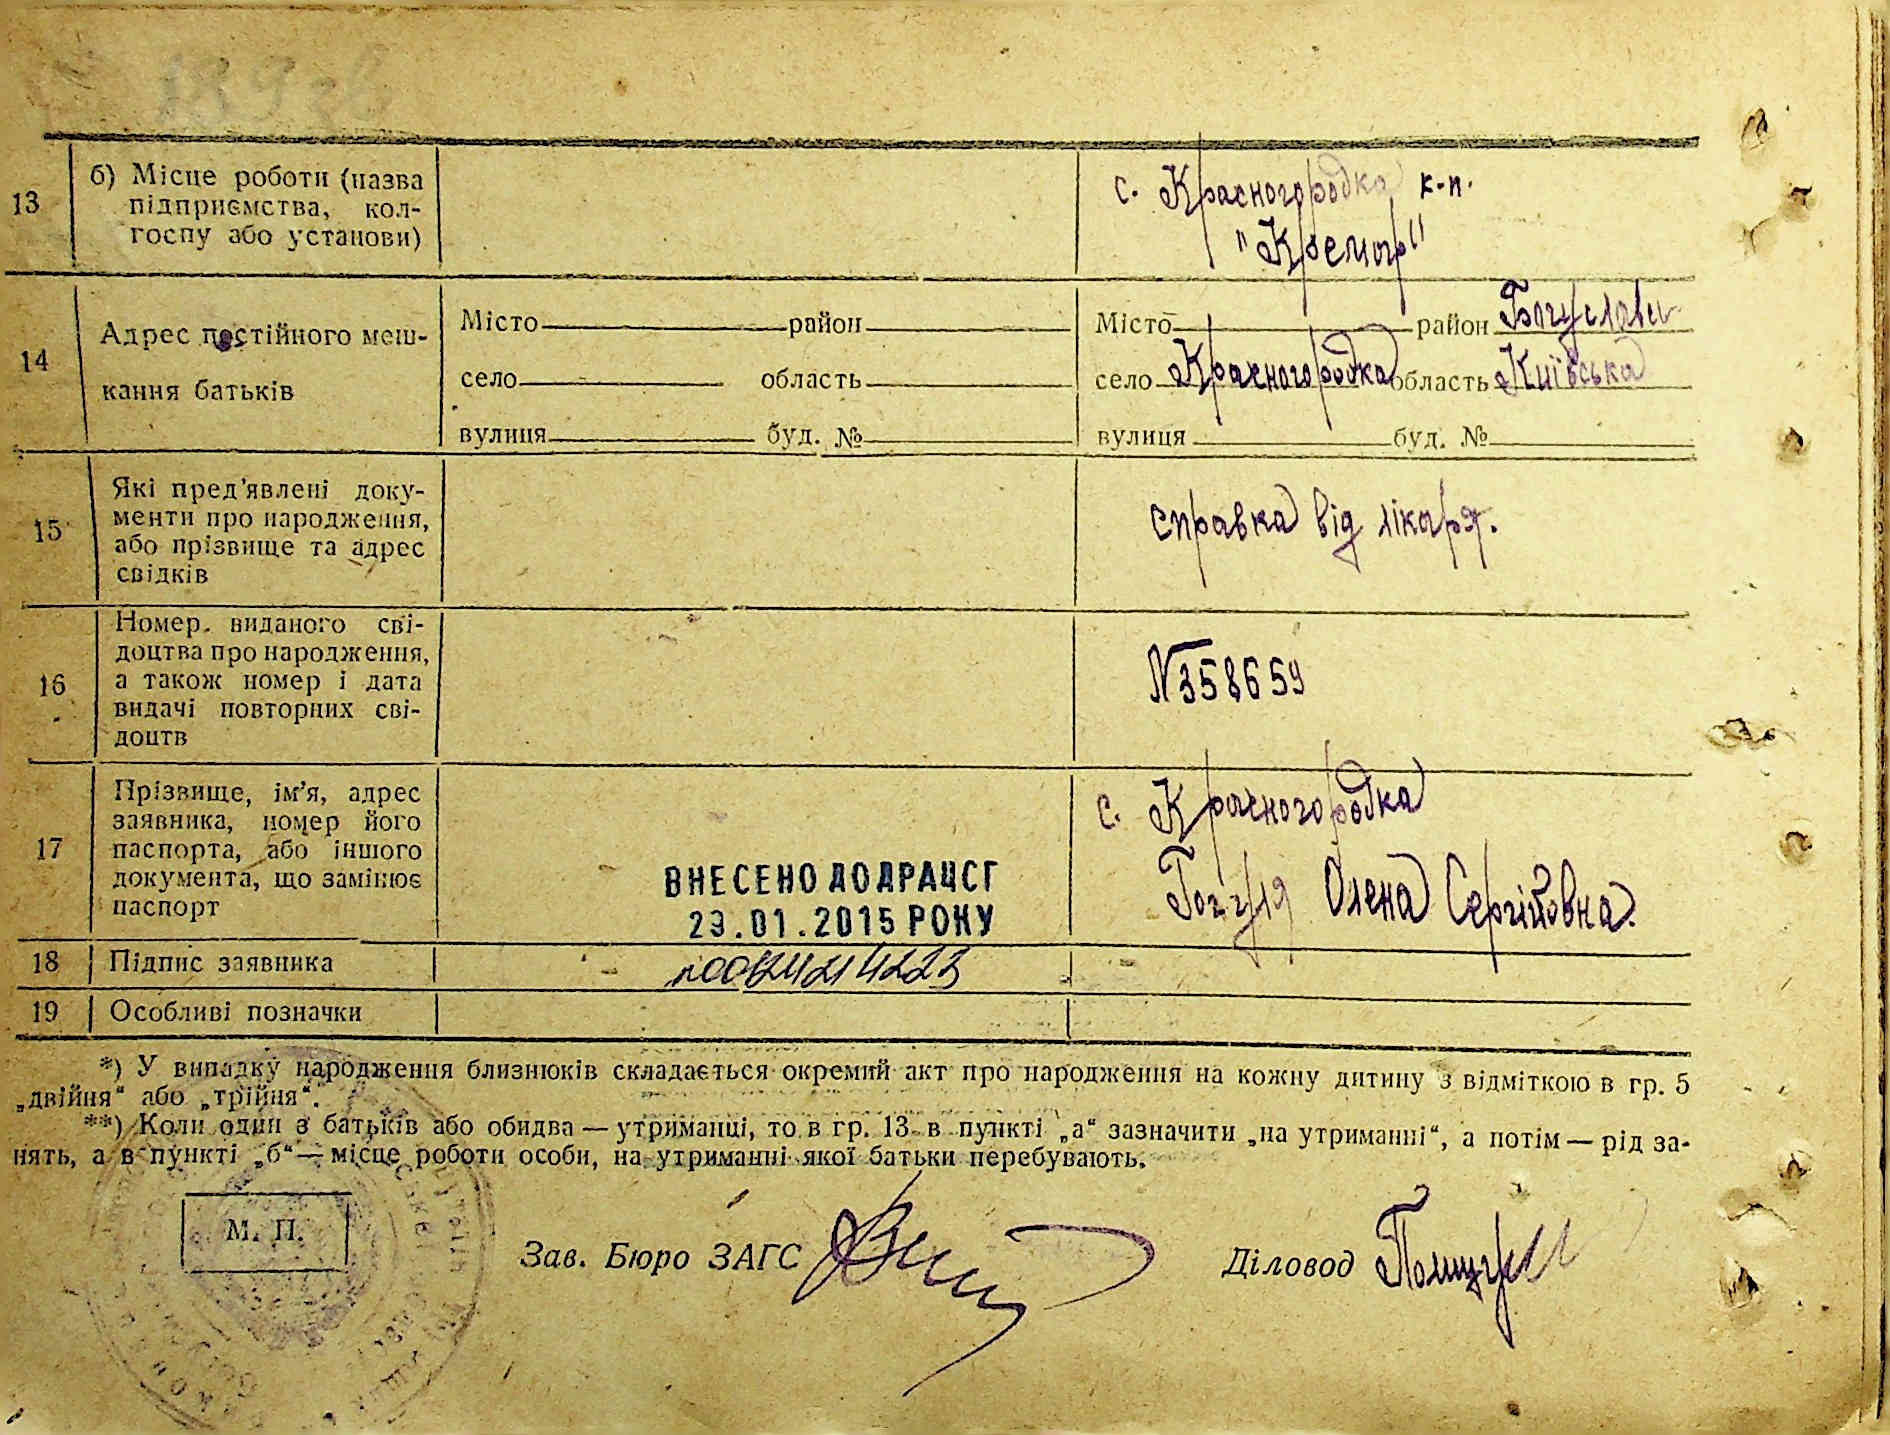 13
б) Місце роботи (назва
підприємства, кол-
госпу або установи)
с. Красногородка к-п.
"Кремар"
14
Адрес постійного меш-
кання батьків
Місто район
село область
вулиця буд. №
Місто район Богуславськ
село Красногородка область Київська
вулиця буд. №
15
Які пред'явлені доку-
менти про народження,
або прізвище та адрес
свідків
справка від лікаря.
16
Номер виданого сві-
доцтва про народження,
а також номер і дата
видачі повторних сві-
доцтв
№358659
17
Прізвище, ім'я, адрес
заявника, номер його
паспорта, або іншого
документа, що замінює
паспорт
ВНЕСЕНО ДО ДРАЦСГ
23.01.2015 РОКУ
с. Красногородка
Олена Сергіївна.
18 Підпис заявника
19 Особливі позначки
*) У випадку народження близнюків складається окремий акт про народження на кожну дитину з відміткою в гр. 5
„двійня" або „трійня".
**) Коли один з батьків або обидва — утриманці, то в гр. 13 в пункті „а" зазначити „на утриманні", а потім — рід за-
нять, а в пункті „б" — місце роботи особи, на утриманні якої батьки перебувають.
М. П.
Зав. Бюро ЗАГС
Діловод